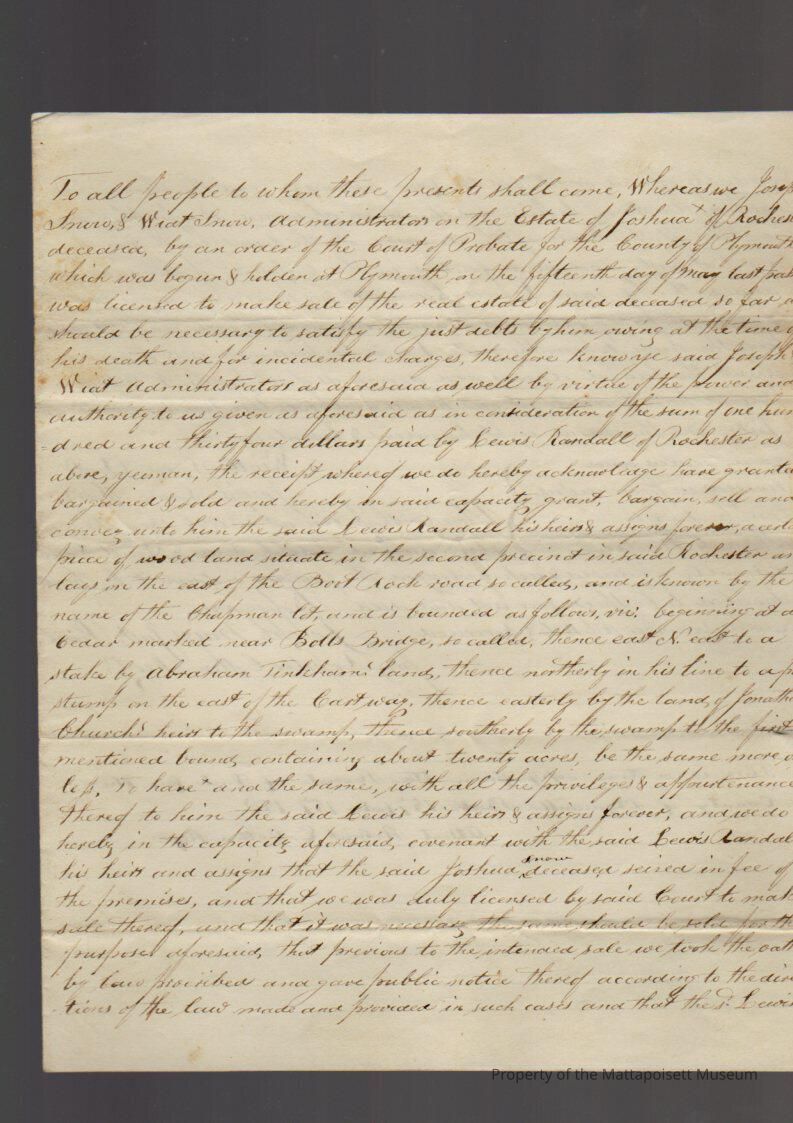 To all people to whom these presents shall come, Whereas we Josep
Snow, & Wiat Snow, Administrators on the Estate of Joshua x of Rochest
deceased, by an order of the Court of Probate for the County of Plymouth
which was begun & holden at Plymouth, on the fifteenth day of May last past
was licensed to make sale of the real estate of said deceased so far a
should be necessary to satisfy the just debts by him owing at the time o
his death and for incidental charges, therefore know ye said Joseph
Wiat Administrators as aforesaid as well by virtue of the power and
authority to us given as aforesaid as in consideration of the sum of one hun
=dred and thirty four dollars paid by Lewis Randall of Rochester as
above, yeoman, the receipt whereof we do hereby acknowledge have grante
bargained & sold and hereby in said capacity grant, bargain, sell and
convey unto him the said Lewis Randall his heirs & assigns forever, a cert
piece of wood land situate in the second precinct in said Rochester an
lays on the east of the Boot Rock road so called, and is known by the
name of the Chapman lot, and is bounded as follows, viz: beginning at a
Cedar marked near Bolls Bridge, so called, thence east N. east to a
stake by Abraham Tinkhams land, thence northerly in his line to a p
stump on the east of the Cart way, thence easterly by the land of Jonatha
Churchs heirs to the swamp, thence southerly by the swamp to the first
mentioned bound, containing about twenty acres, be the same more o
less, To have x and the same, with all the privileges & appurtenance
thereof to him the said Lewis his heirs & assigns forever, and we do
hereby in the capacity aforesaid, covenant with the said Lewis Randal
his heirs and assigns that the said Joshua snow deceased seized in fee of
the premises, and that we was duly licensed by said Court to mak
sale thereof, and that it was necessary the same should be sold for th
purposes aforesaid, that previous to the intended sale we took the oath
by law proscribed and gave public notice thereof according to the dire
-tions of the law made and provided in such cases and that the sd. Lewis
Property of the Mattapoisett Museum